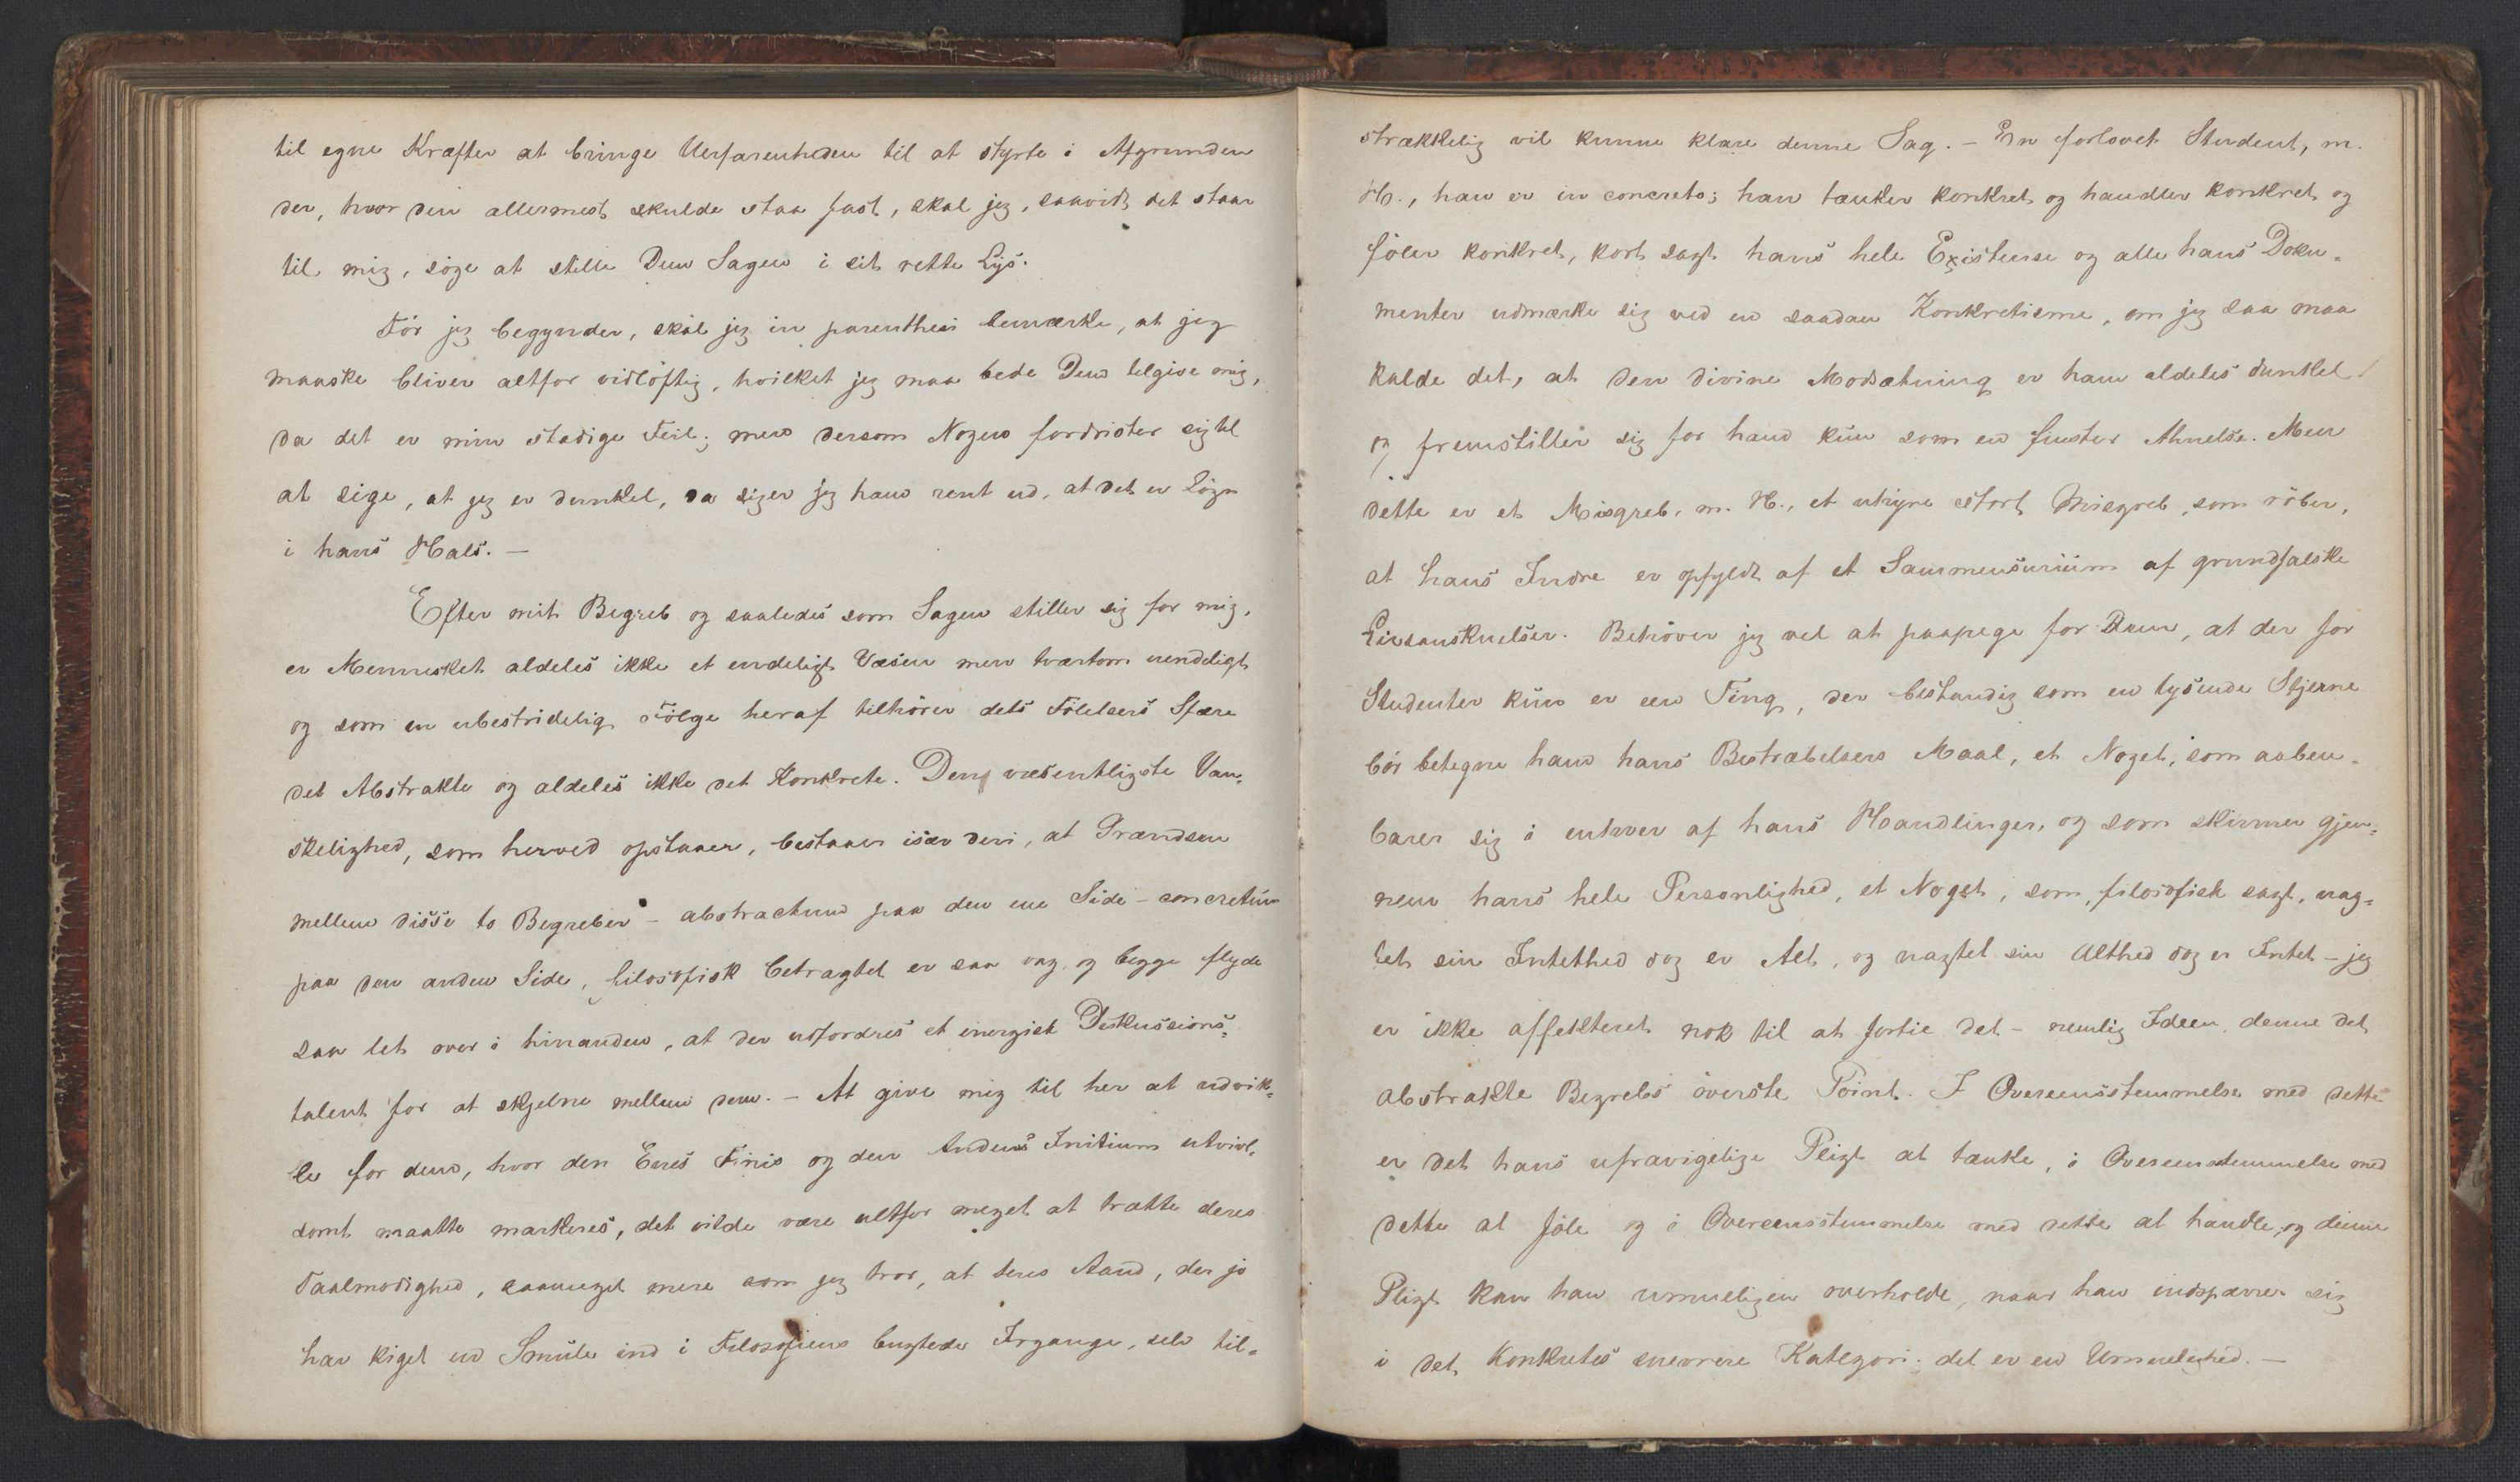 til egne Kræfter at bringe Uerfarenheden til at styrte i Afgrunden
der, hvor den allermest skulde staa fast, skal jeg, saavidt det staar
til mig, söge at stille Dem Sagen i sit rette Lys.
För jeg begynder, skal jeg in parenthesi bemærke, at jeg
maaske bliver altfor vidlöftig, hvilket jeg maa bede Dem tilgive mig,
da det er min stadige Feil; men dersom Nogen fordrister sig til
at sige, at jeg er dunkel, da siger jeg ham rent ud, at det er Lögn
i hans Hals. —
Efter mit Begreb og saaledes som Sagen stiller sig for mig,
er Mennesket aldeles ikke et endeligt Væsen men tvertom uendeligt
og som en ubestridelig Fölge heraf tilhörer dets Fölelsers Sfære
det Abstrakte og aldeles ikke det Konkrete. Den væsentligste Van-
skelighed, som herved opstaaer, bestaaer især deri, at Grændsen
mellem disse to Begreber – abstractum paa den ene Side – concretum
paa den anden Side, filosofisk betragtet er saa vag, og begge flyde
saa let over i hinanden, at der udfordres et energisk Diskussions-
talent for at skjelne mellem dem. – At give mig til her at udvik-
le for dem, hvor den Enes Finis og den Andens Initium utvivl-
somt maatte markeres, det vilde være altfor meget at trætte deres
Taalmodighed, saameget mere som jeg tror, at deres Aand, der jo
har kiget en Smule ind i Filosofiens bugtede Irgange, selv til-
strækkelig vil kunne klare denne Sag. – En forlovet Student, m.
H., han er in concreto; han tænker konkret og handler konkret og
föler konkret, kort sagt hans hele Existense og alle hans Doku-
menter udmærke sig ved en saadan Konkretisme, om jeg saa maa
kalde det, at den divine Modsætning er ham aldeles dunkel
og fremstiller sig for ham kun som en finster Ahnelse. Men
dette er et Misgreb, m. H., et uhyre stort Misgreb, som röber,
at hans Indre er opfyldt af et Sammensurium af grundfalske
Livsanskuelser. Behöver jeg vel at paapege for Dem, at der for
Studenter kun er een Ting, der bestandig som en lysende Stjerne
bör betegne ham hans Bestræbelsers Maal, et Noget, som aaben-
barer sig i enhver af hans Handlinger, og som skinner gjen-
nem hans hele Personlighed, et Noget, som, filosofisk sagt, uag-
tet sin Intethed dog er Alt, og uagtet sin Althed dog er Intet – jeg
er ikke affekteret nok til at fortie det – nemlig Ideen, denne det
abstrakte Begrebs överste Point. I Overeensstemmelse med dette
er det hans ufravigelige Pligt at tænke, i Overeensstemmelse med
dette at föle og i Overeensstemmelse med dette at handle, og denne
Pligt kan han umueligen overholde, naar han indspærrer sig
i det Konkretes snevrere Kategori; det er en Umuelighed. —